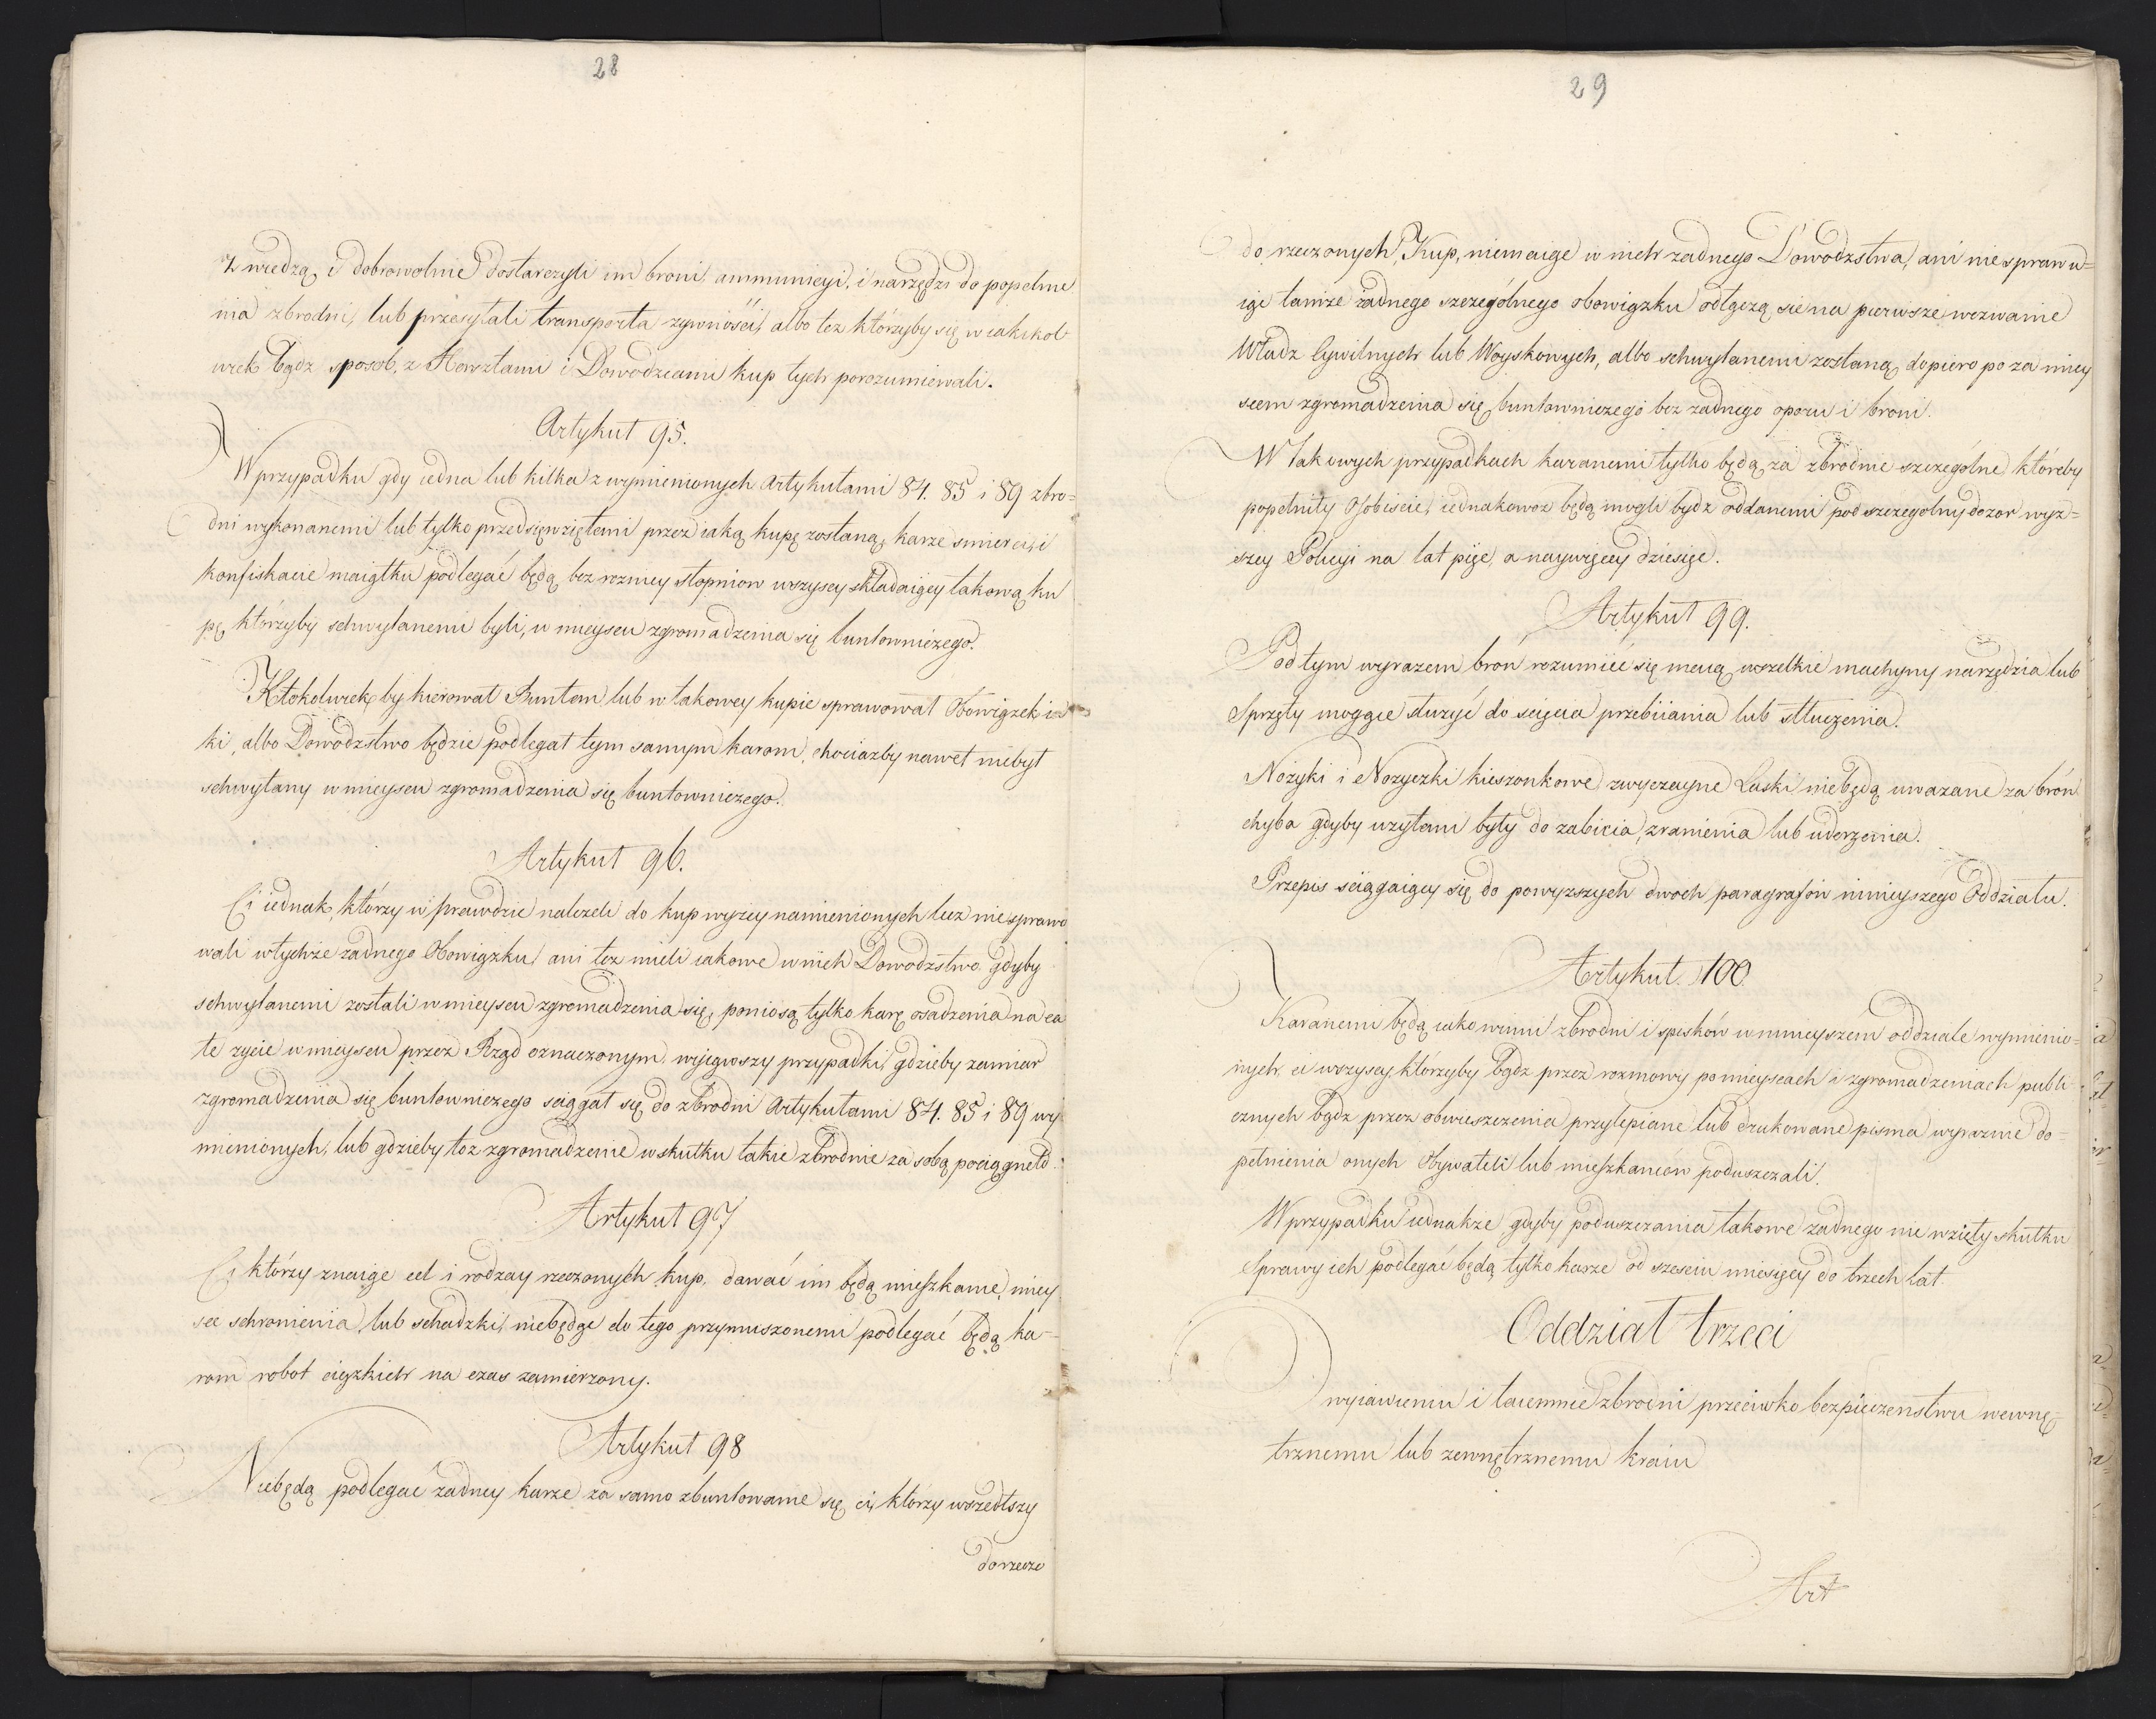 28
z wiedzą i dobrowolnie dostarczyli im broni, ammunicyi, i narzędzi do popełnie
nia zbrodni, lub przesyłali transporta zywności, albo tez którzyby się w iakikol
wiek bądz sposob, z Hersztami i Dowodzcami kup tych porozumiewali.
Artykuł 95.
W przypadku gdy iedna lub kilka z wymienionych Artykułami 84. 85 i 89 zbro=
dni wykonanemi lub tylko przedsięwziętemi przez iaką kupę zostaną, karze smierci, i
konfiskacie maiątku podlegać będą bez roznicy stopniow wszyscy składaiący takową ku
pę, którzyby schwytanemi byli, w mieyscu zgromadzenia się buntowniczego.
Ktokolwiek by kierował Buntem lub w takowey kupie sprawował Obowiązek ia
ki, albo Dowodzstwo będzie podlegał tym samym karom, chociazby nawet niebył
schwytany w mieyscu zgromadzenia się buntowniczego.
Artykuł 96.
Ci iednak, którzy w prawdzie nalezeli do kup wyzey namienionych lecz nie sprawo
wali w tychże zadnego Obowiązku, ani tez mieli iakowe w nich Dowodzstwo gdyby
schwytanemi zostali w mieyscu zgromadzenia się, poniosą tylko karę osadzenia na ca
łe zycie w mieyscu przez Rząd oznaczonym wyiąwszy przypadki gdzieby zamiar
zgromadzenia się buntowniczego sciągał się do zbrodni Artykułami 84. 85 i 89 wy
mienionych, lub gdzieby toz zgromadzenie w skutku takie zbrodnie za sobą pociągneło.
Artykuł 97
Ci którzy znaiąc cel i rodzay rzeczonych kup, dawać im będą mieszkanie, miey
sce schronienia lub schadzki, niebędąc do tego przymuszonemi podlegać będą ka=
rom robot cięzkich na czas zamierzony.
Artykuł 98
Niebędą podlegać żadney karze za samo zbuntowanie się ci, którzy wszedłszy
do rzeczo
29
do rzeczonych Kup, niemaiąc w nich zadnego Dowodzstwa, ani nie sprawu=
iąc tamże żadnego szczególnego obowiązku odłączą się na pierwsze wezwanie
Władz Cywilnych lub Woyskowych, albo schwytanemi zostaną, dopiero po za miey
scem zgromadzenia się buntowniczego bez zadnego oporu i broni.
W takowych przypadkach karanemi tylko będą za zbrodnie szczególne, któreby
popełnity Osobiscie, iednakowoz będą mogli bydz oddanemi pod szczegolny dozor wyz=
szey Policyi na lat pięc, a naywięcey dziesięc.
Artykuł 99.
Pod tym wyrazem broń rozumieć się maią wszelkie machyny narzędzia lub
Sprzęty mogące służyć do scięcia przebiiania lub stłuczenia.
Nożyki i Nozyczki kieszonkowe zwyczayne Laski niebędą uwazane za broń
chyba gdyby uzytemi były do zabicia, zranienia lub uderzenia.
Przepis sciągaiący się do powyzszych dwoch paragrafów ninieyszego Oddziału.
Artykuł. 100.
Karanemi będą iako winni zbrodni i spisków w ninieyszem oddziale wymienio=
nych, ci wszyscy, którzyby bądz przez rozmowy po mieyscach i zgromadzeniach publi
cznych bądz przez obwieszczenia przylepiane lub drukowane pisma wyraznie do=
pełnienia onych Obywateli lub mieszkancow poduszczali.
W przypadku iednakze gdyby poduszczania takowe zadnego nie wzięły skutku
Sprawcy ich podlegać będą tylko karze od szesciu miesięcy do trzech lat.
Oddział trzeci
O wyiawieniu i taiemnicy zbrodni przeciwko bezpieczenstwu wewnę=
trznemu lub zewnętrznemu kraiu
Art